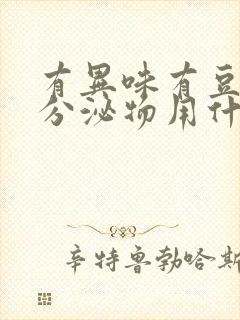 有異味有豆
分泌物用什
辛特鲁勃哈斯